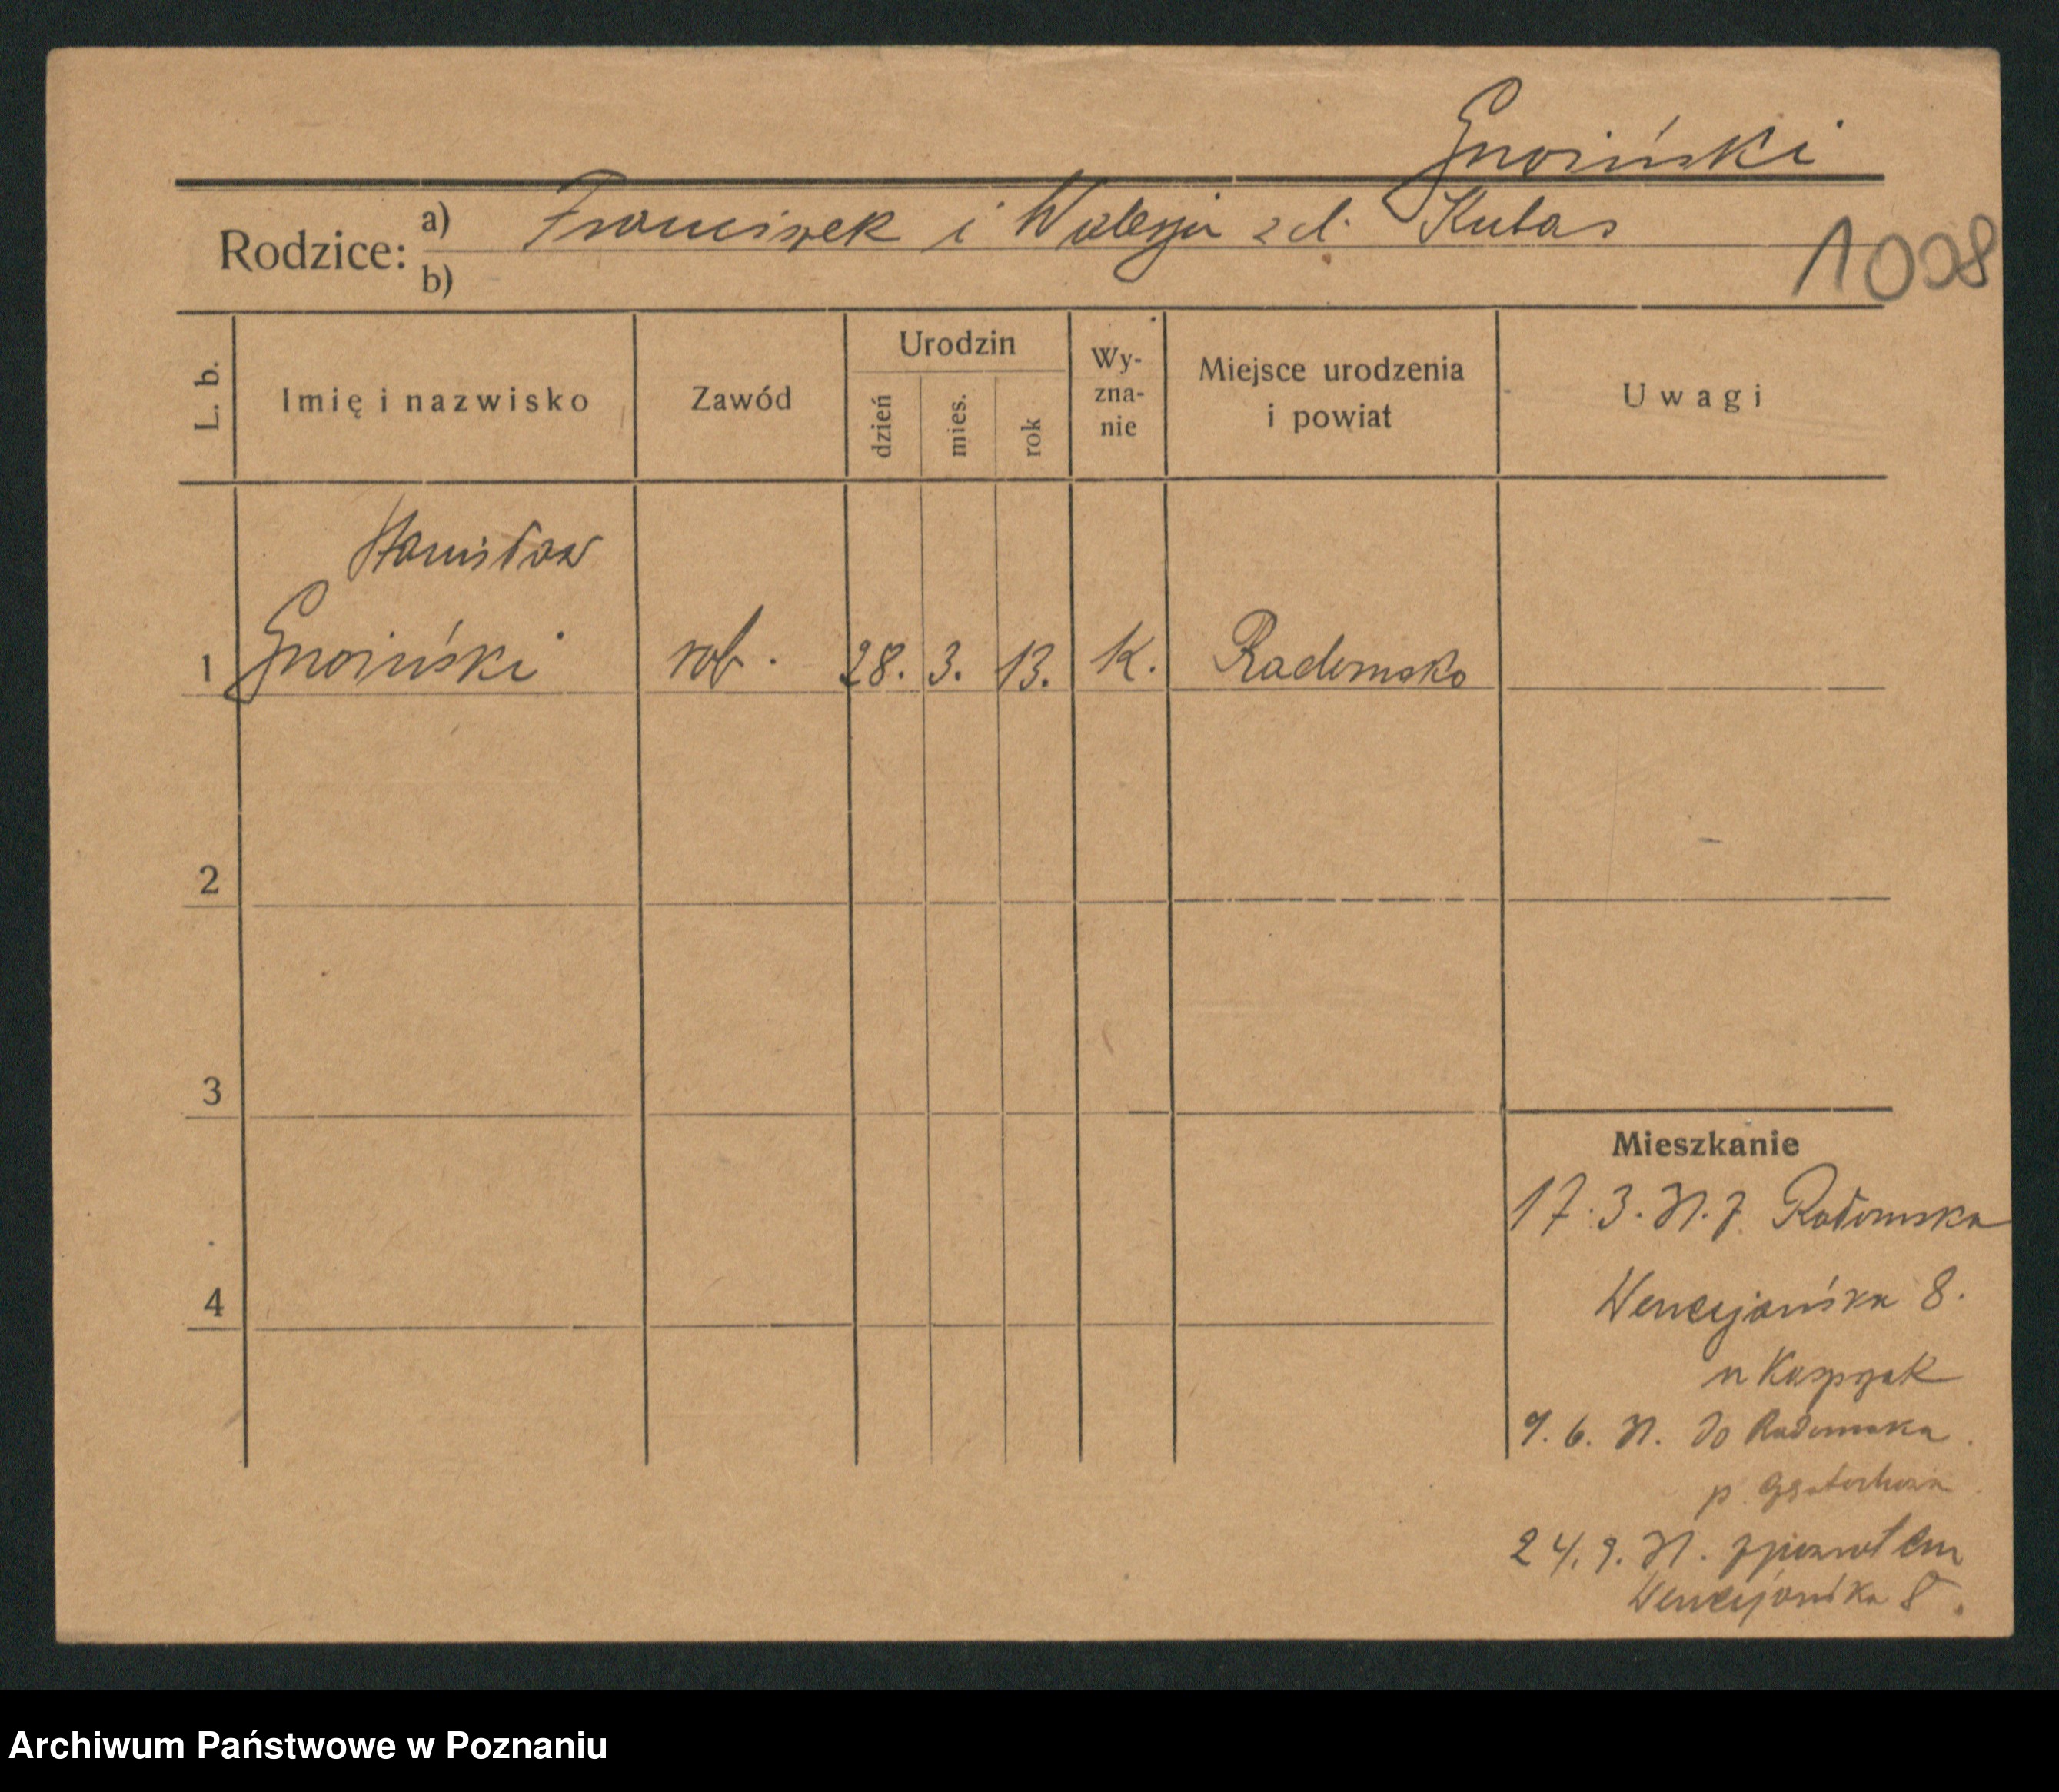 Gnoiński
Rodzice: a) Franciszek i Walerja z d. Kubas
b)
1008
L. b.
Imię i nazwisko
Zawód
Urodzin
dzień
mies.
rok
Wy-
zna-
nie
Miejsce urodzenia
i powiat
Uwagi
Stanisław
1 Gnoiński rob. 28. 3. 13. k. Radomsko
2
3
Mieszkanie
17. 3. 31. z Radomska
4
Wenecjańska 8.
u Kasprzak
9. 6. 31. do Radomska
p.
24. 9. 31. z powrotem
Wenecjańska 8.
Archiwum Państwowe w Poznaniu